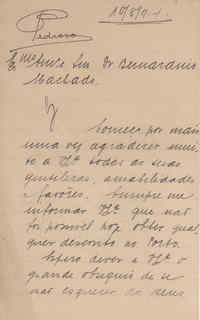 Pedroso
Exmo Amº e Snr Dr Bernardino
Machado
Começo por mais
uma vez agradecer mui-
to a V.Exª todas as suas
gentilezas, amabilidades
e favores. Cumpre-me
informar V.Exª que não
foi possivel hoje obter qual-
quer desconto no Porto.
Espero dever a V.Exª o
grande obsequio de se
não esquecer do meu